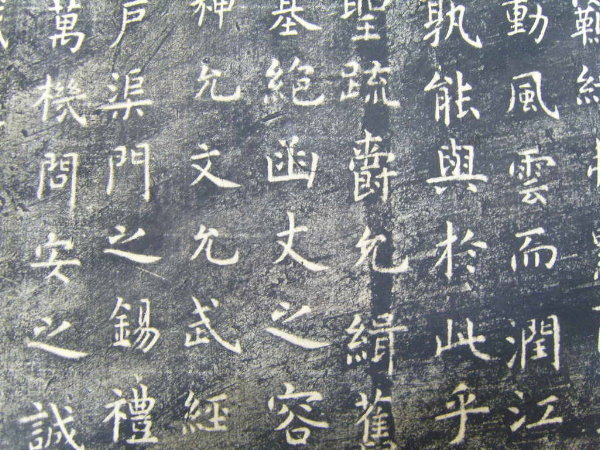 動風雲而潤江
孰能與於此乎
聖疏爵允緝舊
基絶函丈之容
神允文允武經
戶渠門之錫禮
萬機問安之誠